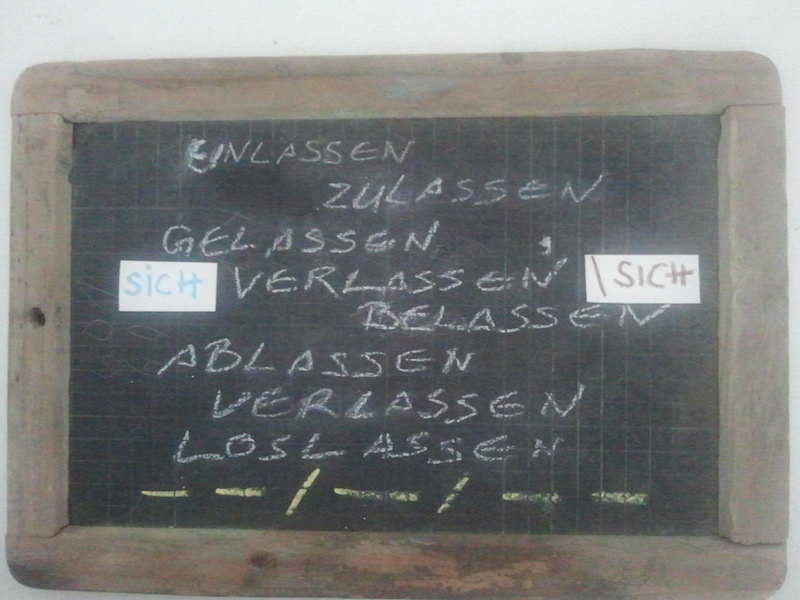 EINLASSEN
ZULASSEN
GELASSEN ,
SICH VERLASSEN \ SICH
BELASSEN
ABLASSEN
VERLASSEN
LOSLASSEN
– – / – / – –